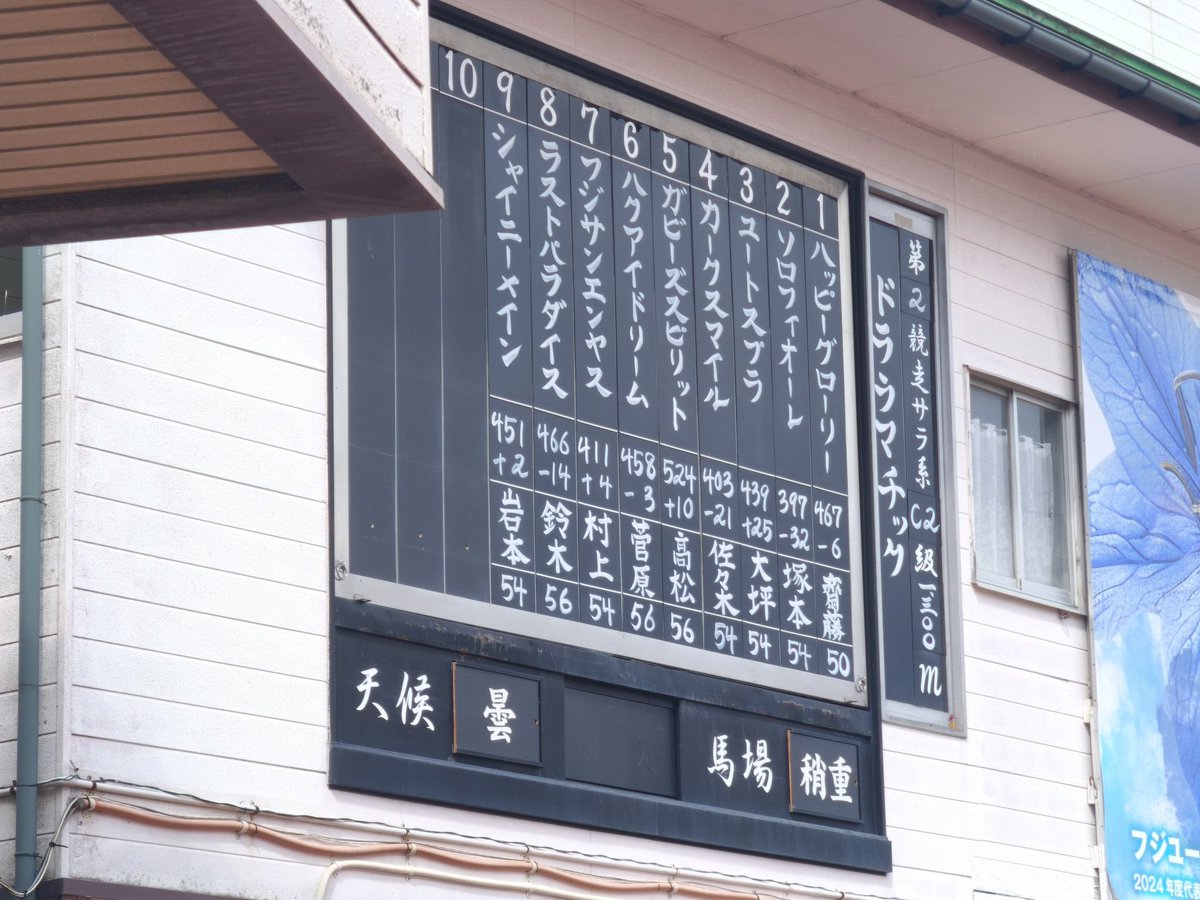 第2競走サラ系C2級一、三〇〇m
ドラマチック
1 ハッピーグローリー 467 -6 齋藤 50
2 ソロフィオーレ 397 -32 塚本 54
3 ユートスプラ 439 +25 大坪 54
4 カークスマイル 403 -21 佐々木 54
5 ガビーズスピリット 524 +10 高松 56
6 ハクアイドリーム 458 -3 菅原 56
7 フジサンエンヤス 411 +4 村上 54
8 ラストパラダイス 466 -14 鈴木 56
9 シャイニーメイン 451 +2 岩本 54
10
天候 曇
馬場 稍重
フジユー
2024年度代表